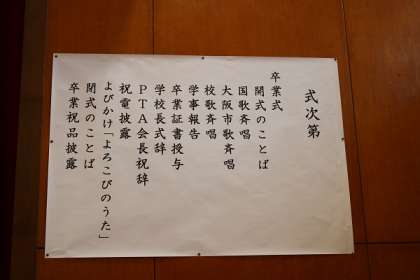 式次第
卒業式
開式のことば
国歌斉唱
大阪市歌斉唱
校歌斉唱
学事報告
卒業証書授与
学校長式辞
PTA会長祝辞
祝電披露
よびかけ「よろこびのうた」
閉式のことば
卒業祝品披露